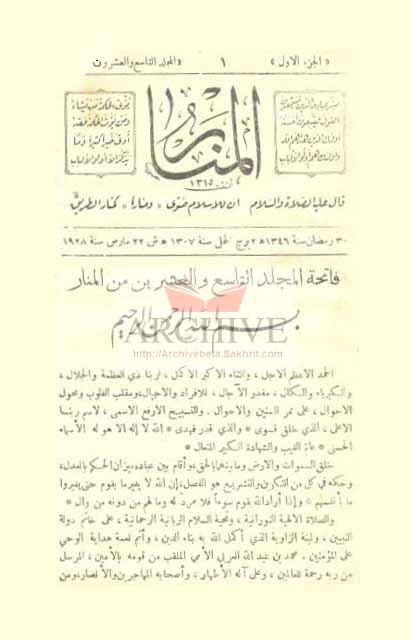 « الجزء الاول » ١ « المجلد التاسع والعشرون »
فبشر عبادي الذين يستمعون
القول فيتبعون أحسنه
أولئك الذين هداهم الله
وأولئك هم أولو الالباب
المنار
١٣١٥
يؤتي الحكمة من يشاء
ومن يؤت الحكمة فقد
أوتي خيرا كثيرا وما
يذكر إلا أولو الالباب
قال عليه الصلاة والسلام ان للاسلام صوى « ومنارا » كمنار الطريق
٣٠ رمضان سنة ١٣٤٦ ٢ برج الحمل سنة ١٣٠٧ ه ش ٢٢ مارس سنة ١٩٢٨
فاتحة المجلد التاسع والعشرين من المنار
بسم الله الرحمن الرحيم
ARCHIVE
http://Archivebeta.Sakhrit.com
الحمد الاعظم الاجل ، والثناء الاكبر الاكمل ، لربنا ذي العظمة والجلال ،
والكبرياء والكمال ، مقدر الآجال ، للافراد والاجيال، ومقلب القلوب ومحول
الاحوال ، على ممر السنين والاحوال . والتسبيح الارفع الاسمى ، لاسم ربنا
الاعلى ، الذي خلق فسوى * والذي قدر فهدى * الله لا إله الا هو له الأسماء
الحسنى * عالم الغيب والشهادة الكبير المتعال *
خلق السموات والارض وما بينهما بالحق، وأقام بين عباده ميزان الحكم بالعدل،
وحكمه في كل من التكوين والتشريع هو الفصل، إن الله لا يغير ما بقوم حتى يغيروا
ما بأنفسهم * وإذا أراد الله بقوم سوءاً فلا مرد له وما لهم من دونه من وال *
والصلاة الالهية النورانية ، وتحية السلام الربانية الرحمانية ، على خاتم دولة
النبيين ، ولبنة الزاوية الذي أكمل الله به بناء الدين ، وأتم نعمة هداية الوحي
على المؤمنين . محمد بن عبد الله العربي الأمي الملقب من قومه بالأمين ، المرسل
من ربه رحمة للعالمين ، وعلى آله الأطهار ، وأصحابه المهاجرين والأنصار، ومن